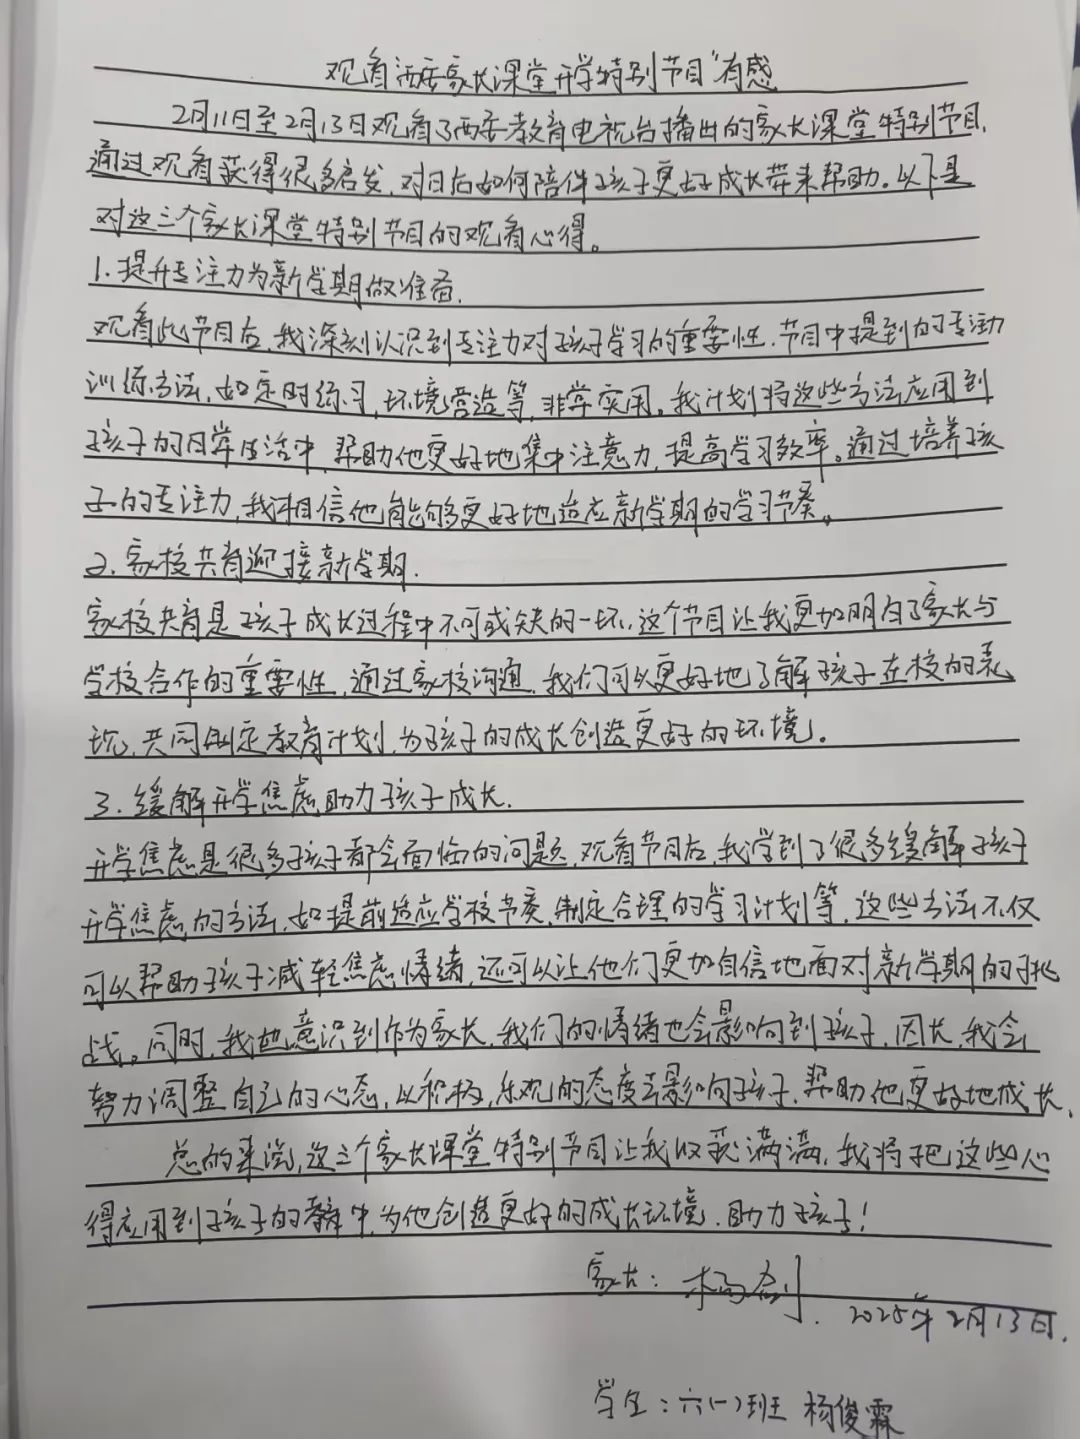 观看西安家长课堂开学特别节目"有感
2月11日至2月13日观看了西安教育电视台播出的家长课堂特别节目,
通过观看获得很多启发,对日后如何陪伴孩子更好成长带来帮助。以下是
对这三个家长课堂特别节目的观看心得。
1.提升专注力为新学期做准备.
观看此节目后,我深刻认识到专注力对孩子学习的重要性.节目中提到的专注力
训练方法,如定时练习,环境营造等,非常实用。我计划将这些方法应用到
孩子的日常生活中,帮助他更好地集中注意力,提高学习效率。通过培养孩
子的专注力,我相信他能够更好地适应新学期的学习节奏。
2.家校共育迎接新学期.
家校共育是孩子成长过程中不可或缺的一环.这个节目让我更加明白了家长与
学校合作的重要性,通过家校沟通.我们可以更好地了解孩子在校的表
现,共同制定教育计划,为孩子的成长创造更好的环境。
3.缓解开学焦虑助力孩子成长.
开学焦虑是很多孩子都会面临的问题,观看节目后,我学到了很多缓解孩子
开学焦虑的方法,如提前适应学校节奏,制定合理的学习计划等,这些方法不仅
可以帮助孩子减轻焦虑情绪,还可以让他们更加自信地面对新学期的挑
战。同时,我也意识到作为家长,我们的情绪也会影响到孩子,因长,我会
努力调整自己的心态,以积极,乐观的态度去影响孩子,帮助他更好地成长.
总的来说,这三个家长课堂特别节目让我收获满满,我将把这些心
得应用到孩子的中,为他创造更好的成长环境.助力孩子!
家长:杨 2025年2月13日.
学生:六(一)班 杨俊霖